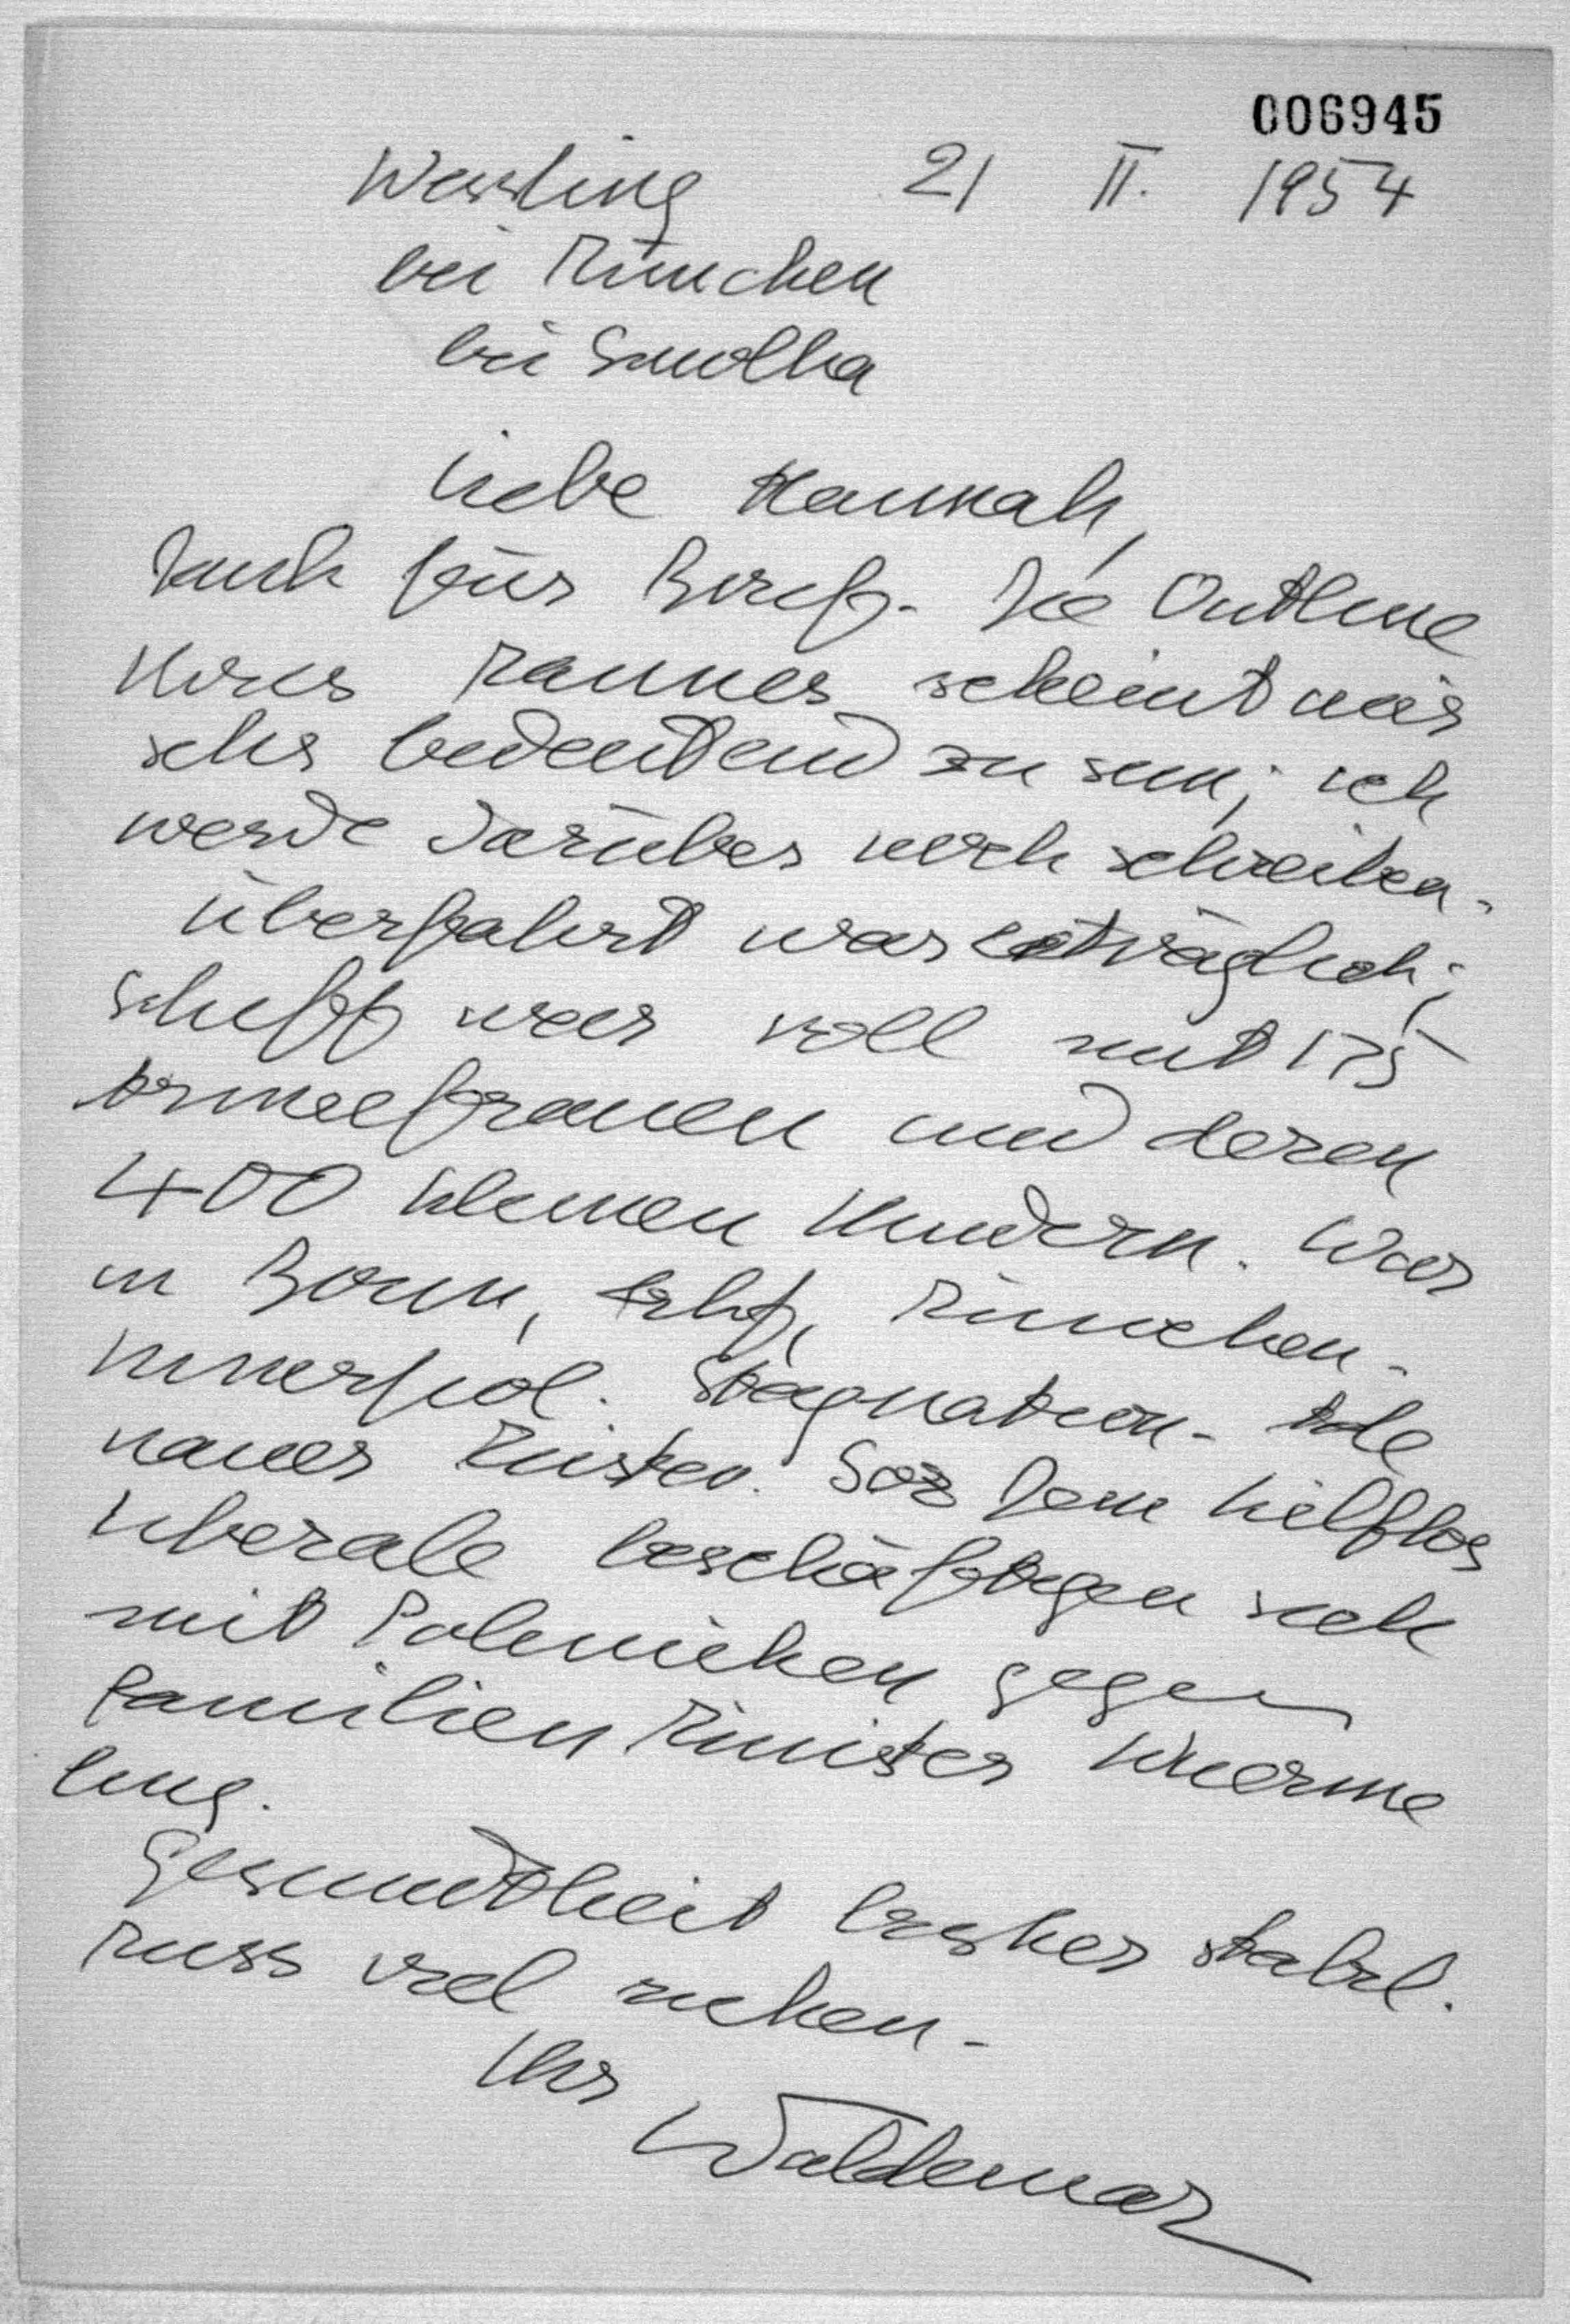 006945
Wessling 21 II. 1954
bei München
bei Smolka
Liebe Hannah,
Dank für Brief. Die Outline
Ihres Mannes scheint mir
sehr bedeutend zu sein; ich
werde darüber noch schreiben.
Überfahrt war erträglich;
Schiff war voll mit 175
Armeefrauen und deren
400 kleinen Kindern. War
in Bonn, Ffm, München.
Innerpol. Stagnation. Ade
nauer Meister. Soz Dem hilflos
Liberale beschäftigen sich
mit Polemiken gegen
Familien Minister Wuerme
ling.
Gesundtheit bisher stabil.
Muss viel ruhen.
Ihr
Waldemar